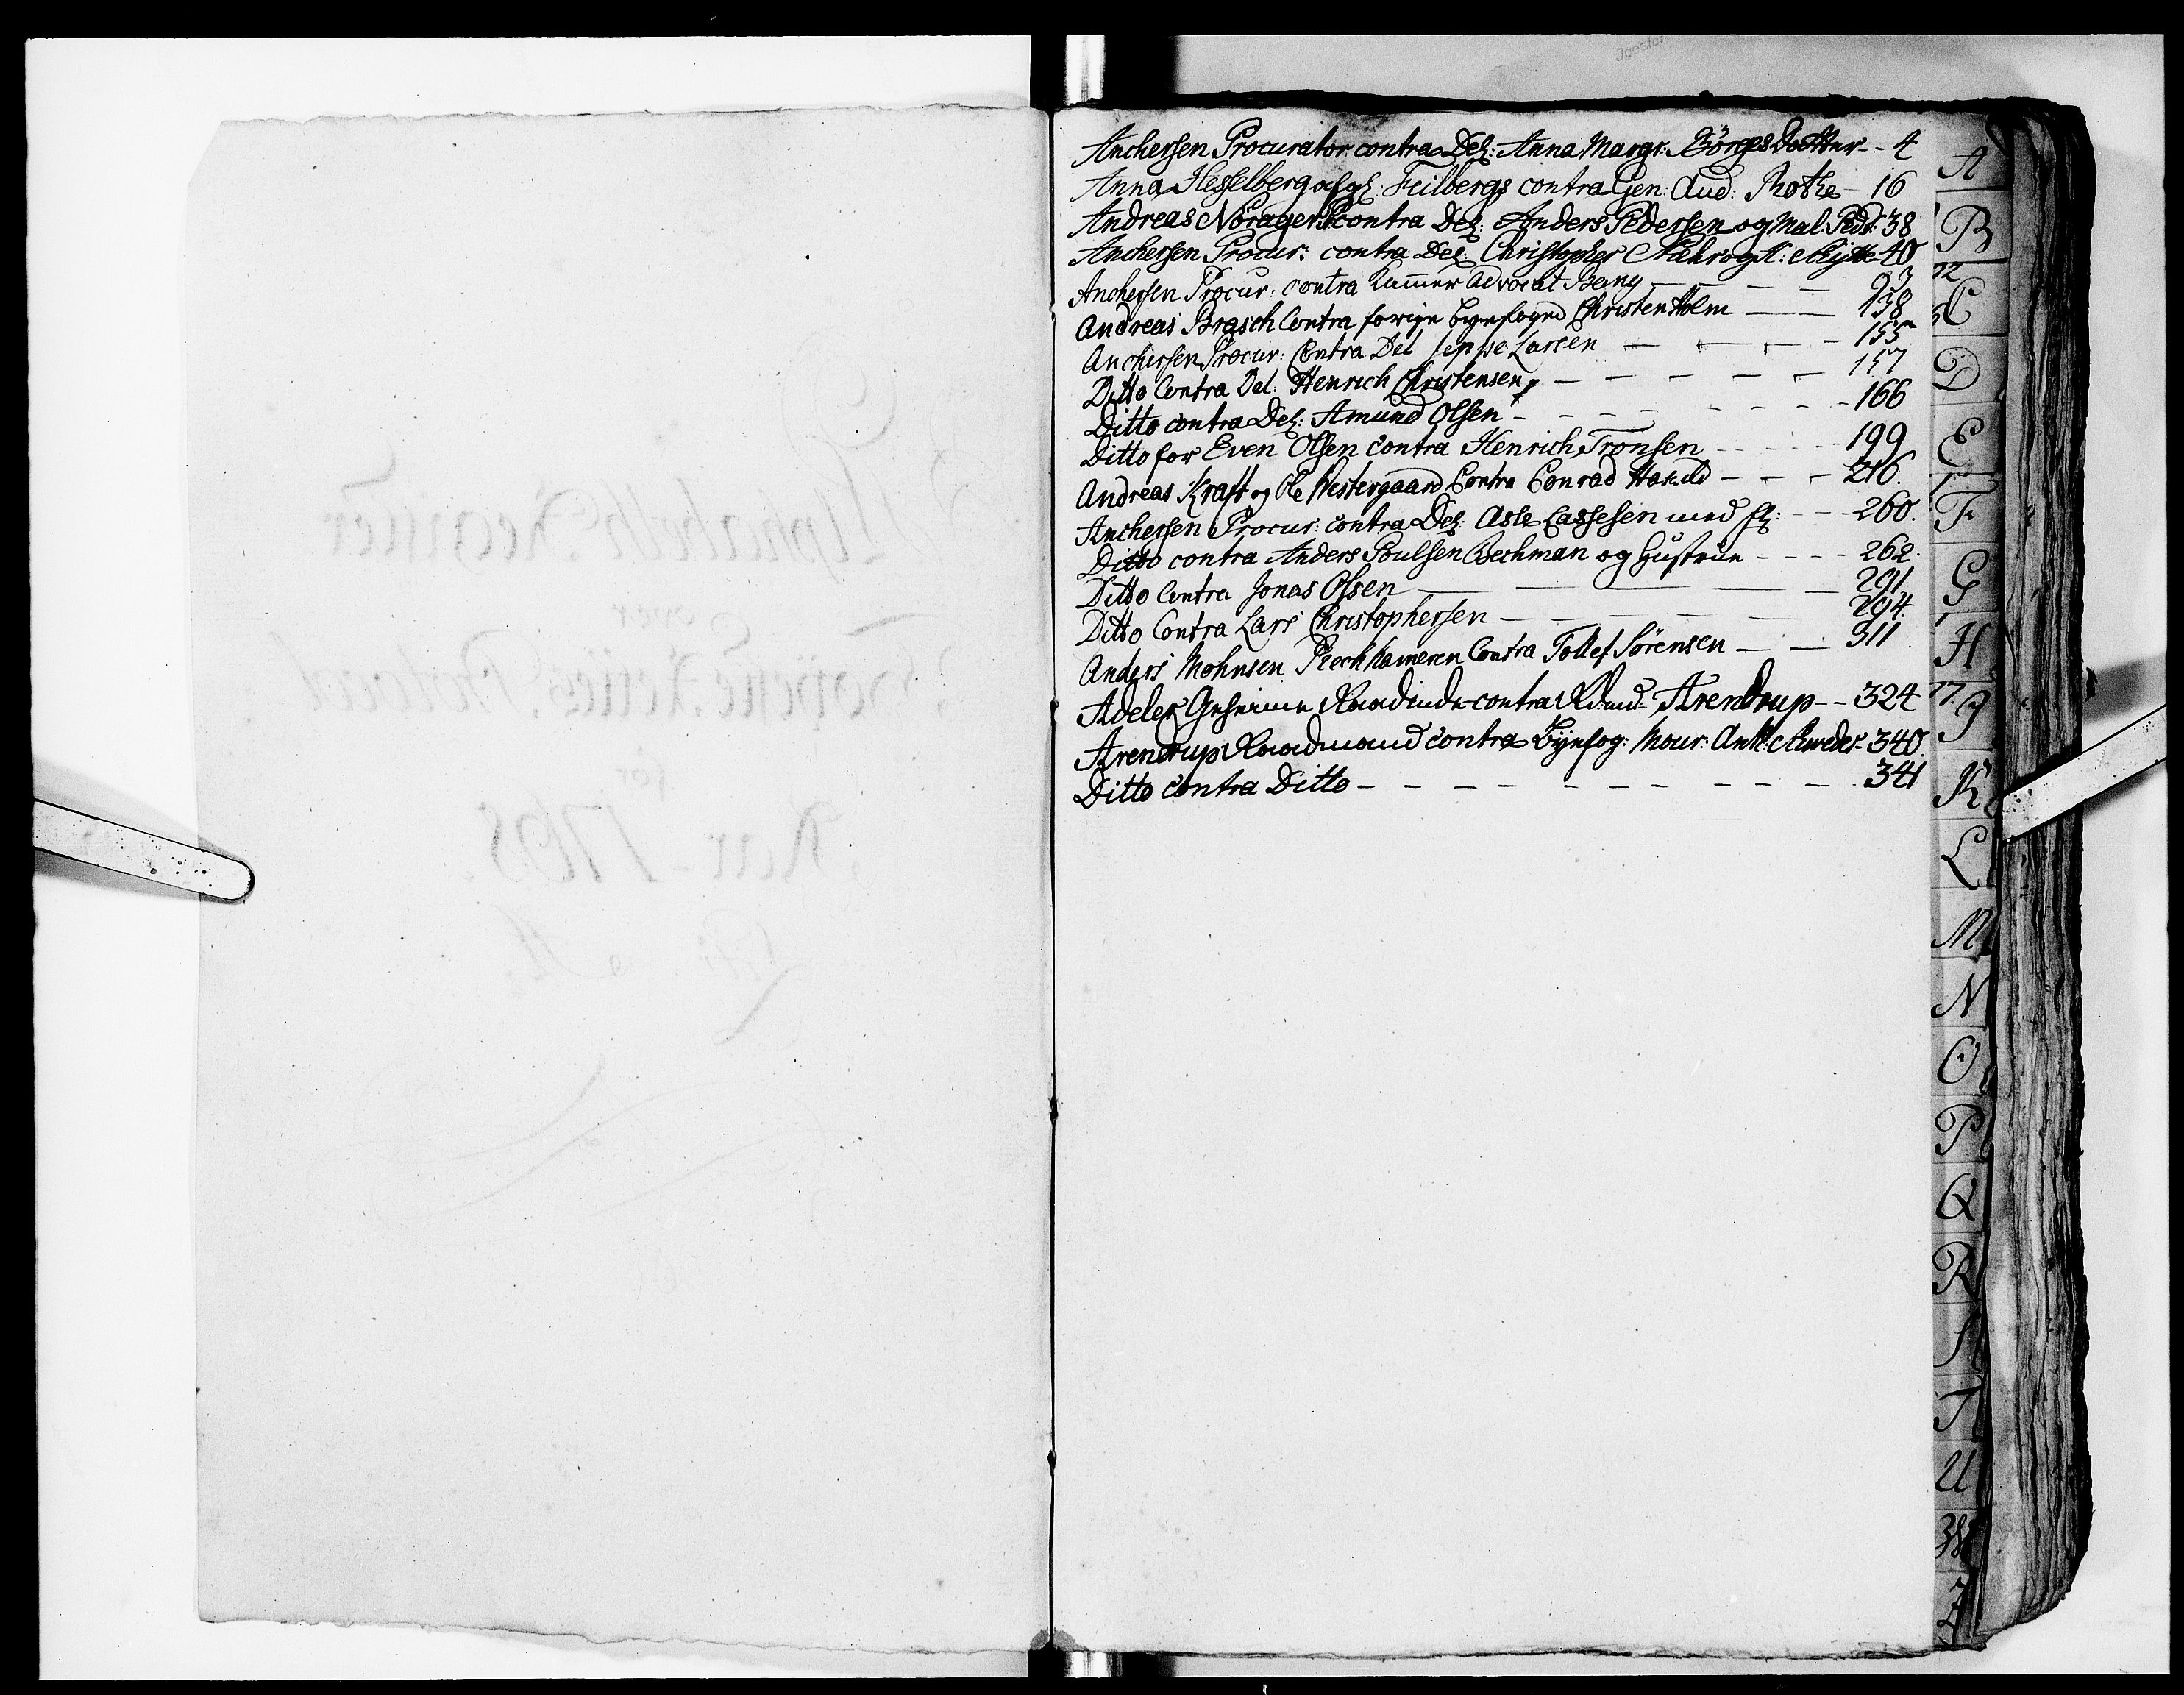 Anchersen Procurator contra Del: Anna Margr: BörgesDotter - - 4
Anna Hesselberg afg: Feilbergs contra Gen: Aud: Rothe - 16
Andreas Nörager contra Del: Anders Pedersen og Mal: Peds: 38
Anchersen Procur: contra Del: Christopher 40
Anchersen Procur: contra Kammer Advocat Bang - - - 93
Andreas Brasch Contra forrige Byefoged Christen Holm - - 138
Anchersen Procur: Contra Del Jeppe Larsen - - - - 155
Ditto Contra Del: Henrich Christensen - - - - - 157
Ditto contra Del: Amund Olsen - - - - - - - 166
Ditto for Even Olsen contra Henrich Tronsen - - - - 199
Andreas Kraft og Ole Westergaard Contra Conrad - - - 216.
Anchersen Procur: contra Del: Asle Lassesen med fl: - - - 260.
Ditto contra Anders Poulsen Bechman og Hustrue - - - - 262.
Ditto Contra Jonas Olsen - - - 291.
Ditto Contra Lars Christophersen - - - - 294.
Anders Mohnsen Contra Tollef Sörensen - - 311
Adeler Geheime Raadinde contra Rdmd: Arendrup - - 324
Arendrup Raadmand contra Byefog: Mour: Ank: 340.
Ditto contra Ditto - - - - - - - - - - 341
A
B
C
D
E
F
G
H
J
K
L
M
N
O
P
Q
R
S
T
U
Z